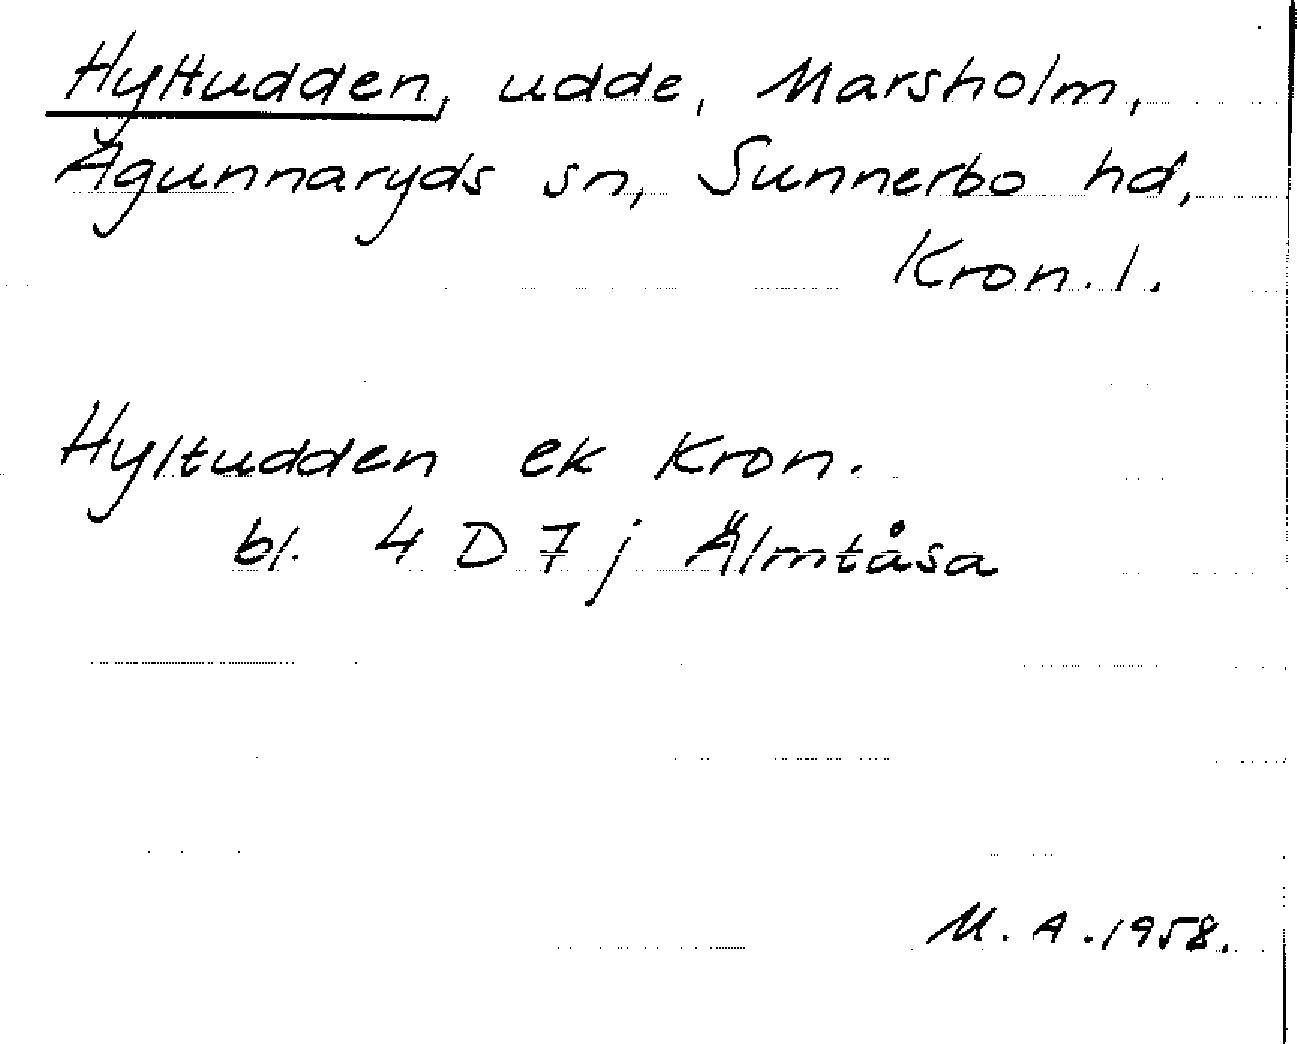 Hyltudden, udde, Marsholm,
Agunnaryds sn, Sunnerbo hd,
Kron. l.
Hyltudden ek Kron.
bl. 4 D 7 j Älmtåsa
M. A. 1958.